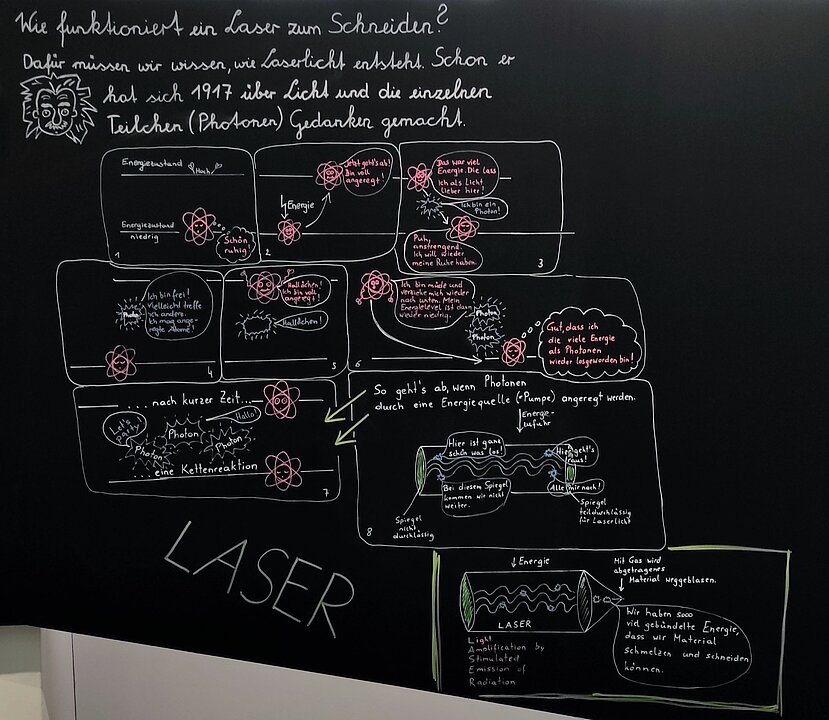 Wie funktioniert ein Laser zum Schneiden?
Dafür müssen wir wissen, wie Laserlicht entsteht. Schon er
hat sich 1917 über Licht und die einzelnen
Teilchen (Photonen) Gedanken gemacht.
Energiezustand
Hoch
Energiezustand
niedrig
Schön
ruhig!
1
Jetzt geht's ab!
Bin voll
angeregt!
Energie
2
Das war viel
Energie. Die lass
ich als Licht
lieber hier!
Ich bin ein
Photon!
Puh,
anstrengend.
Ich will wieder
meine Ruhe haben.
3
Ich bin frei!
Vielleicht treffe
ich andere.
Ich mag ange-
regte Atome!
Photon
4
Hallöchen!
Ich bin voll
angeregt!
Hallöchen!
5
Ich bin müde und
verziehe mich wieder
nach unten. Mein
Energielevel ist dann
wieder niedrig.
Photon
Photon
Gut, dass ich
die viele Energie
als Photonen
wieder losgeworden bin!
6
...nach kurzer Zeit...
Let's
party!
Hallo!
Photon
Photon
Photon
...eine Kettenreaktion
7
So geht's ab, wenn Photonen
durch eine Energiequelle (=Pumpe) angeregt werden.
Energie-
zufuhr
Hier ist ganz
schön was los!
Hier geht's
raus!
Bei diesem Spiegel
kommen wir nicht
weiter.
Alle mir nach!
Spiegel
nicht
durchlässig
Spiegel
teildurchlässig
für Laserlicht
8
LASER
Energie
Mit Gas wird
abgetragenes
Material weggeblasen.
LASER
Wir haben sooo
viel gebündelte Energie,
dass wir Material
schmelzen und schneiden
können.
Light
Amplification by
Stimulated
Emission of
Radiation